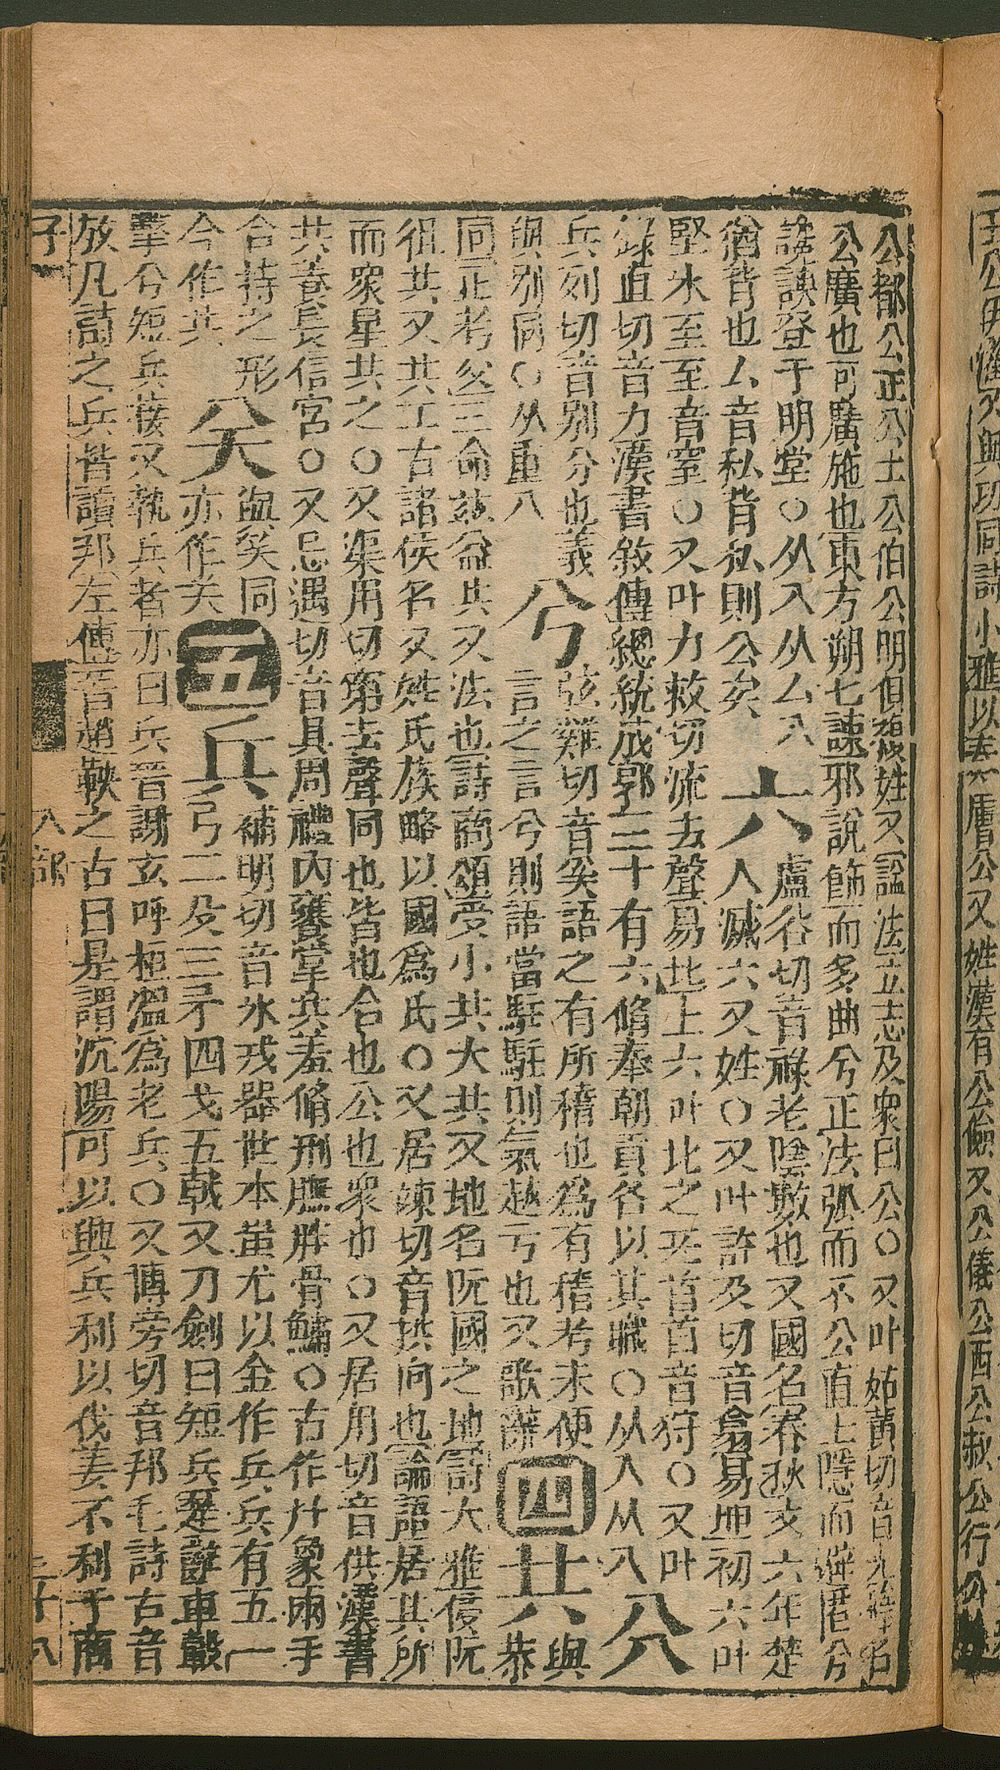 公都公正公土公伯公明俱複姓又諡法立志及衆曰公○又叶姑黃切音光釋名
公廣也可廣施也東方朔七諫邪說飾而多曲兮正法弧而不公直士隱而避匿兮
讒諛登于明堂○从入从厶八 六 盧谷切音祿老陰數也又國名春秋文六年楚
猶背也厶音私背私則公矣 人滅六又姓○又叶許及切音翕易坤初六叶
堅氷至至音窒○又叶力救切流去聲易比上六叶比之无首首音狩○又叶
錄直切音力漢書敘傳總統成郭三十有六脩奉朝貢各以其職○从入从八 㕣
兵列切音別分也義 兮 弦雞切音奚語之有所稽也爲有稽考未便 與
與別同○从重八 言之言兮則語當駐駐則氣越亏也又歌辭 四 共 恭
同正考父三命茲益共又法也詩商頌受小共大共又地名阮國之地詩大雅侵阮
徂共又共工古諸侯名又姓氏族略以國爲氏○又居竦切音拱向也論語居其所
而衆星共之○又渠用切窮去聲同也皆也合也公也衆也○又居用切音供漢書
共養長信宮○又忌遇切音具周禮內饔掌共羞脩刑膴胖骨鱐○古作廾象兩手
合持之形 㒸 與㒸同 補明切音氷戎器世本蚩尤以金作兵兵有五一
今作共 亦作关 五 兵 弓二殳三矛四戈五戟又刀劍曰短兵楚辭車轂
擊兮短兵接又執兵者亦曰兵晉謝玄呼桓溫爲老兵○又博旁切音邦毛詩古音
放凡詩之兵皆讀邦左傳晉趙鞅之占曰是謂沉陽可以興兵利以伐姜不利子商
子一 八部 三十八